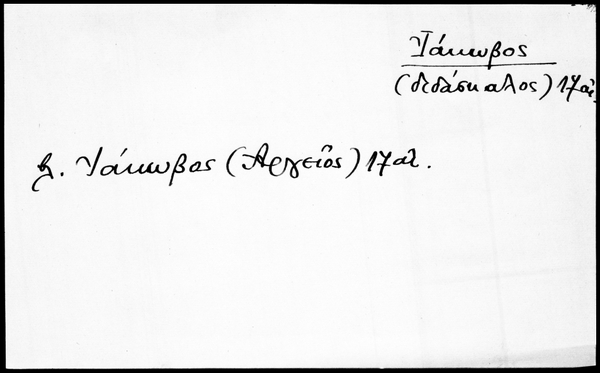 Ἰάκωβος
(διδάσκαλος) 17 αἰ.
βλ. Ἰάκωβος (Ἀργεῖος) 17 αἰ.